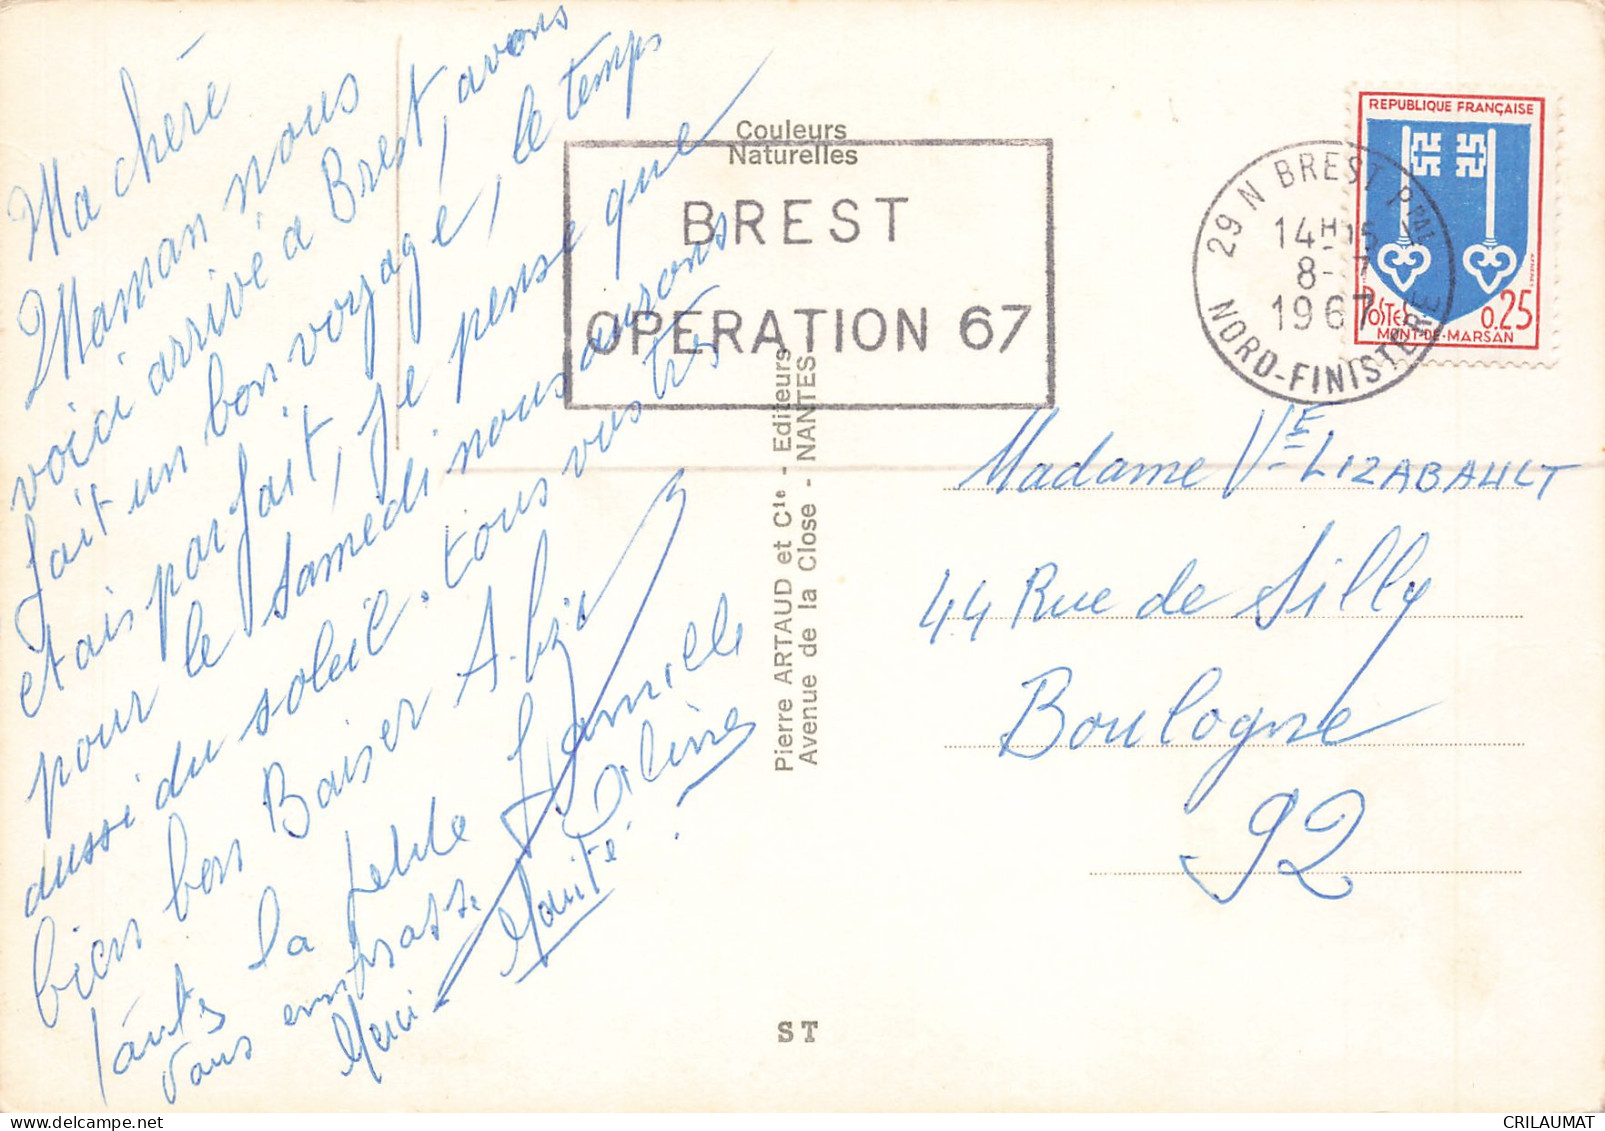 Ma cherè
Maman nous
voici arrivé a Brest, avons
fait un bon voyage, le temps
etais parfait, je pense que
pour le samedi nous aurons
aussi du soleil. tous vous très
bien bon Baiser
la petite famille
vous embrasse
Merci Maité
Couleurs
Naturelles
BREST
OPERATION 67
29 N BREST PPAL
14H15
8-7
1967
NORD-FINISTERE
REPUBLIQUE FRANÇAISE
POSTES 0.25
MONT-DE-MARSAN
Pierre ARTAUD et Cie - Editeurs
Avenue de la Close - NANTES
Madame VE LIZABAULT
44 Rue de Silly
Boulogne
92
ST
CRILAUMAT